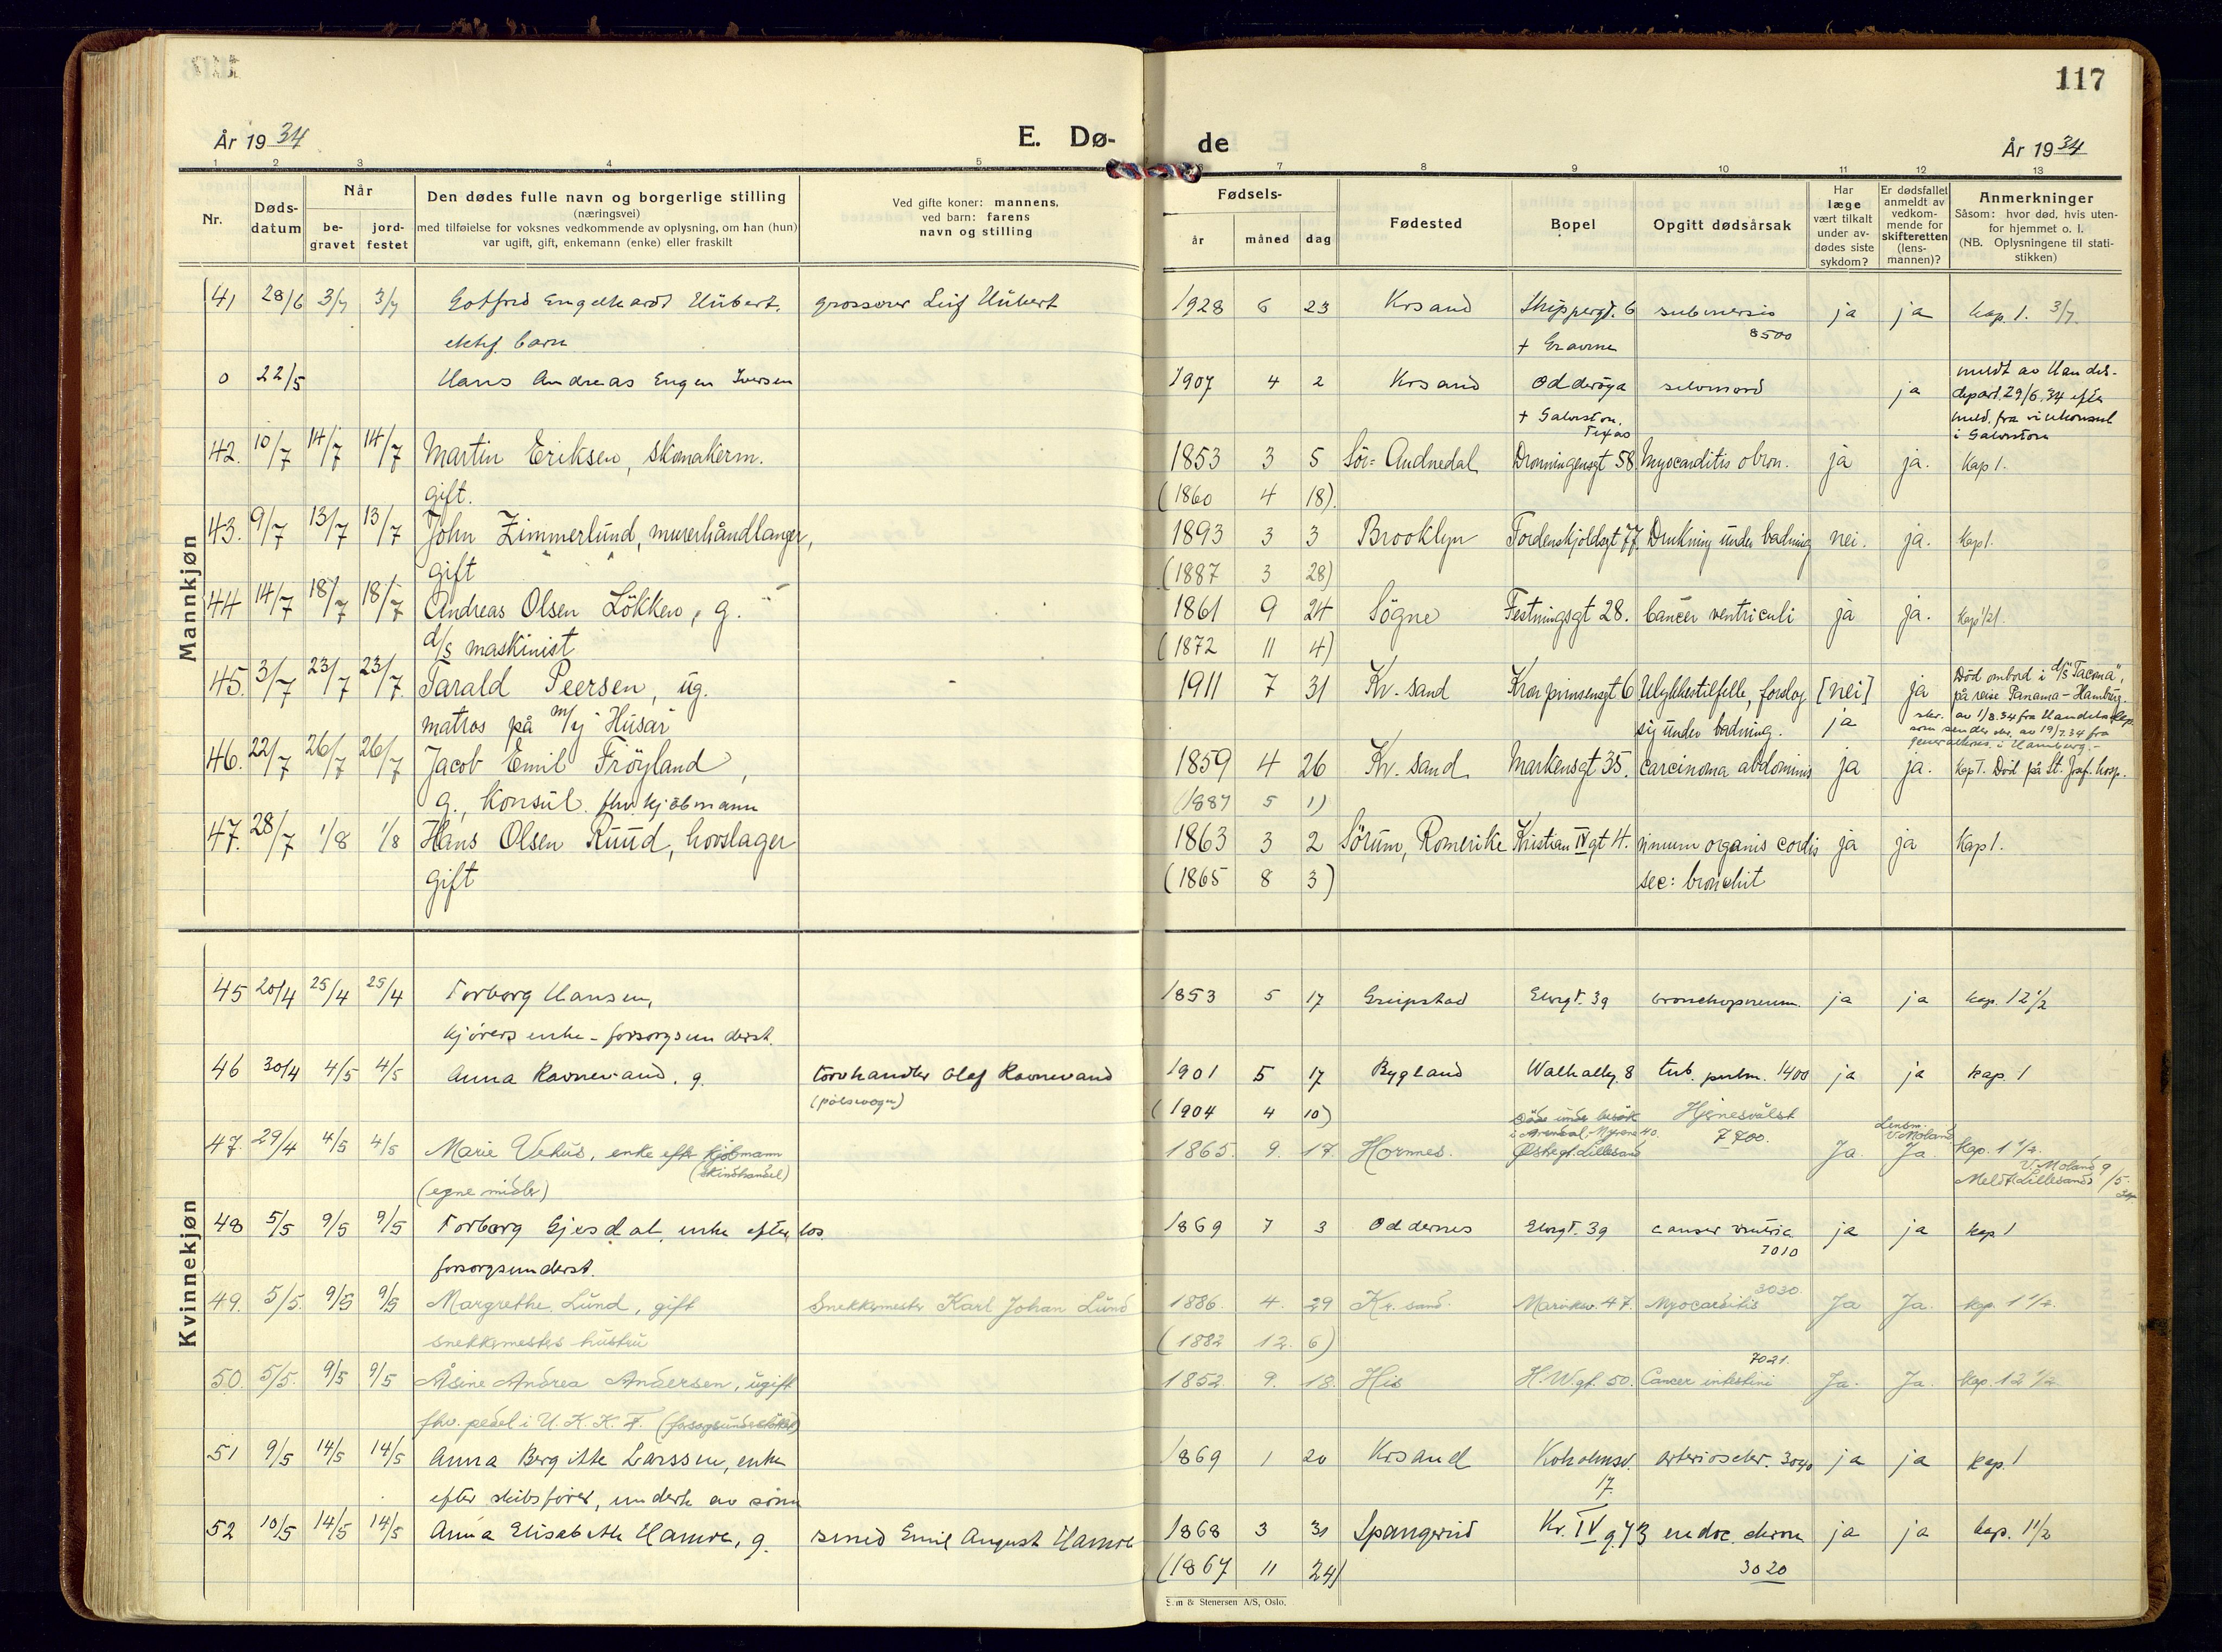 117
År 1934
E. Dø-
de
År 1934
1 2 3 4 5 6 7 8 9 10 11 12 13
Nr.
Døds-
datum
Når
be-
gravet
jord-
festet
Den dødes fulle navn og borgerlige stilling
(næringsvei)
med tilføielse for voksnes vedkommende av oplysning, om han (hun)
var ugift, gift, enkemann (enke) eller fraskilt
Ved gifte koner: mannens,
ved barn: farens
navn og stilling
Fødsels-
år måned dag
Fødested
Bopel
Opgitt dødsårsak
Har
læge
vært tilkalt
under av-
dødes siste
sykdom?
Er dødsfallet
anmeldt av
vedkom-
mende for
skifteretten
(lens-
mannen)?
Anmerkninger
Såsom: hvor død, hvis uten-
for hjemmet o. l.
(NB. Oplysningene til stati-
stikken)
Mannkjøn
41 28/6 3/7 3/7 Gotfred Engelhardt Hübert, grosserer Leif Hübert 1928 6 23 Krsand Skippergt. 6 submersio ja ja kap. 1. 3/7.
ektef. barn + Gravene 8500
0 22/5 Hans Andreas Eugen Iversen 1907 4 2 Krsand Odderøya selvmord ja meldt av Handels-
+ Galveston, Texas depart. 29/6.34 efter
meld. fra visekonsul
i Galveston
42. 10/7 14/7 14/7 Martin Eriksen, skomakerm. 1853 3 5 Sør-Audnedal Dronningensgt 58 Myocarditis chron. ja ja. Kap 1.
gift. (1860 4 18).
43. 9/7 13/7 13/7 John Zimmerlund, murerhåndlanger, 1893 3 3 Brooklyn Tordenskjoldsgt 77 Drukning under badning nei. ja. Kap 1.
gift (1887 3 28)
44 14/7 18/7 18/7 Andreas Olsen Løkken, g. 1861 9 24 Søgne Festningsgt 28. Cancer ventriculi ja ja.
d/s maskinist (1872 11 4)
45. 3/7 23/7 23/7 Tarald Peersen, ug. 1911 7 31 Kr.sand Kronprinsensgt 6 Ulykkestilfelle, forslog [nei] ja Død ombord i d/s "Tacoma",
matros på m/y "Husar" sig under badning. ja på reise Panama-Hamburg.
skr. av 1/8.34 fra Handelsdep.
som sender skr. av 19/7.34 fra
generalkons. i Hamburg.-
46. 22/7 26/7 26/7 Jacob Emil Frøyland, 1859 4 26 Kr.sand Markensgt 35. carcinoma abdominis ja ja. Kap 1. Død på St. Josf. hosp.
g., konsul. fhv. kjøbmann (1887 5 1)
47. 28/7 1/8 1/8 Hans Olsen Ruud, hovslager 1863 3 2 Sørum, Romerike Kristian IV gt 4. organis cordis ja ja Kap 1.
gift (1865 8 3) sec: bronchit
Kvinnekjøn
45 20/4 25/4 25/4 Torborg Hansen, 1853 5 17 Gripstad Elvegt. 39 bronchopneum. ja ja kap. 1 2 1/2
kjørers enke - forsorgsunderst.
46 30/4 4/5 4/5 Anna Ravnevand, g. torvhandler Olaf Ravnevand 1901 5 17 Bygland Walhallv. 8 tub. pulm. 1400 ja ja kap. 1
(pølsevogn) (1904 4 10)
47. 29/4 4/5 4/5 Marie Vehus, enke efter kjøbmann 1865. 9. 17. Hornnes. Døde under besøk i Arendal, Myrene 40. Østregt. Lillesand Hjernesvulst 7700. Ja. Lensm. V. Moland Ja. Kap. 1 1/2.
(skindhandel)
(egne midler) V. Moland 9/5.
Meldt Lillesand
48 5/5 9/5 9/5 Torborg Gjesdal, enke efter los. 1869 7 3 Oddernes Elvegt. 39 7010 ja ja kap 1
forsorgsunderst.
49. 5/5. 9/5 9/5 Margrethe Lund, gift Snekkermester Karl Johan Lund 1886. 4. 29 Kr.sand. Markv. 47. Myocarditis 3030 Ja Ja. kap. 1 1/2.
snekkermesters hustru (1882 12. 6)
50. 5/5. 9/5 9/5 Åsine Andrea Andersen, ugift 1852. 9. 18. His H.W.gt. 50. Cancer intestini 7021. Ja. Ja. kap. 12 1/2
fhv. pedel i U.K.K.F. (forsorgsunderstøttet)
51 9/5 14/5 14/5 Anna Bergitte Larssen, enke 1869 1 20 Krsand Koholmsv. 17. arterioscler. 3040 ja ja kap. 1
efter skibsfører, underh. av sønn
52 10/5 14/5 14/5 Anna Elisabeth Hamre, g. smed Emil August Hamre 1868 3 31 Spangereid Kr. IV g. 73 endoc. chron ja ja kap. 1 1/2
(1867 11 24) 3020
S.m & Stenersen A/S, Oslo.